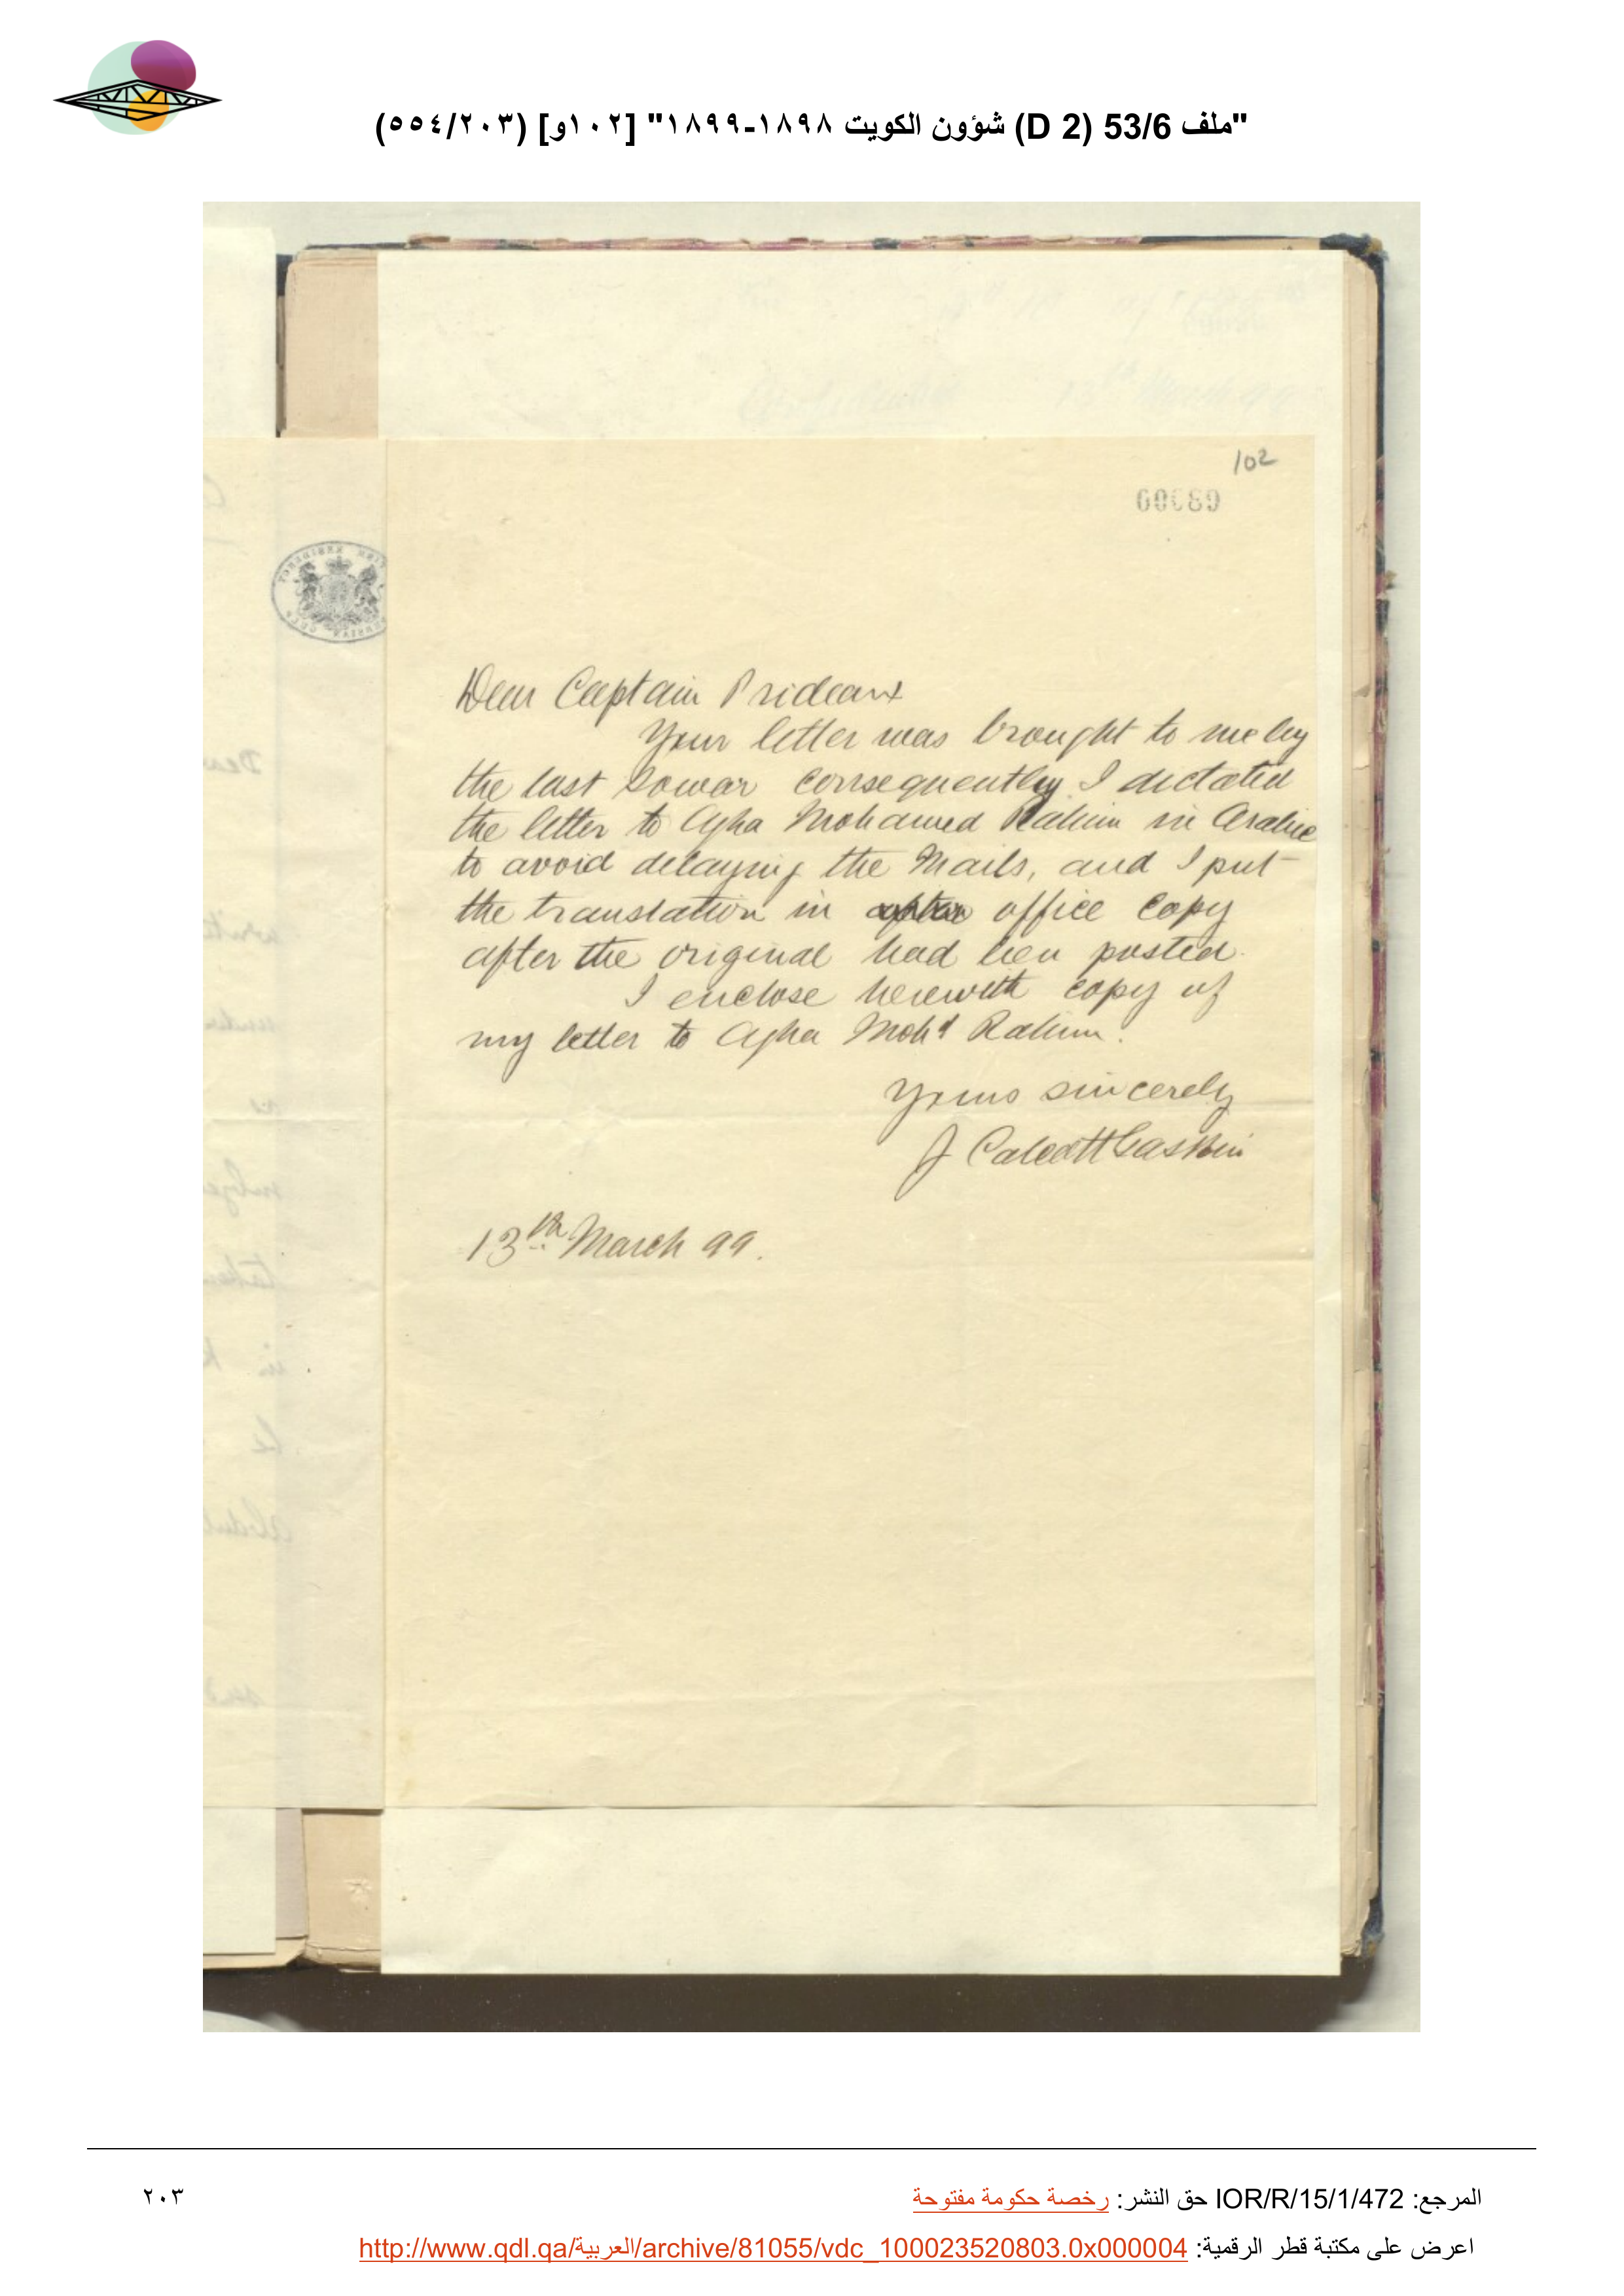 "ملف 53/6 (D 2) شؤون الكويت ١٨٩٨-١٨٩٩" [١٠٢و] (٥٥٤/٢٠٣)
102
Dear Captain Prideaux
Your letter was brought to me by
the last Sowar consequently I dictated
the letter to Agha Mohamed Rahim in Arabic
to avoid delaying the Mails, and I put
the translation in office copy
after the original had been posted.
I enclose herewith copy of
my letter to Agha Mohd Rahim.
Yours sincerely
J Calcott Gaskin
13th March 99.
المرجع: IOR/R/15/1/472 حق النشر: رخصة حكومة مفتوحة
٢٠٣
اعرض على مكتبة قطر الرقمية: http://www.qdl.qa/العربية/archive/81055/vdc_100023520803.0x000004